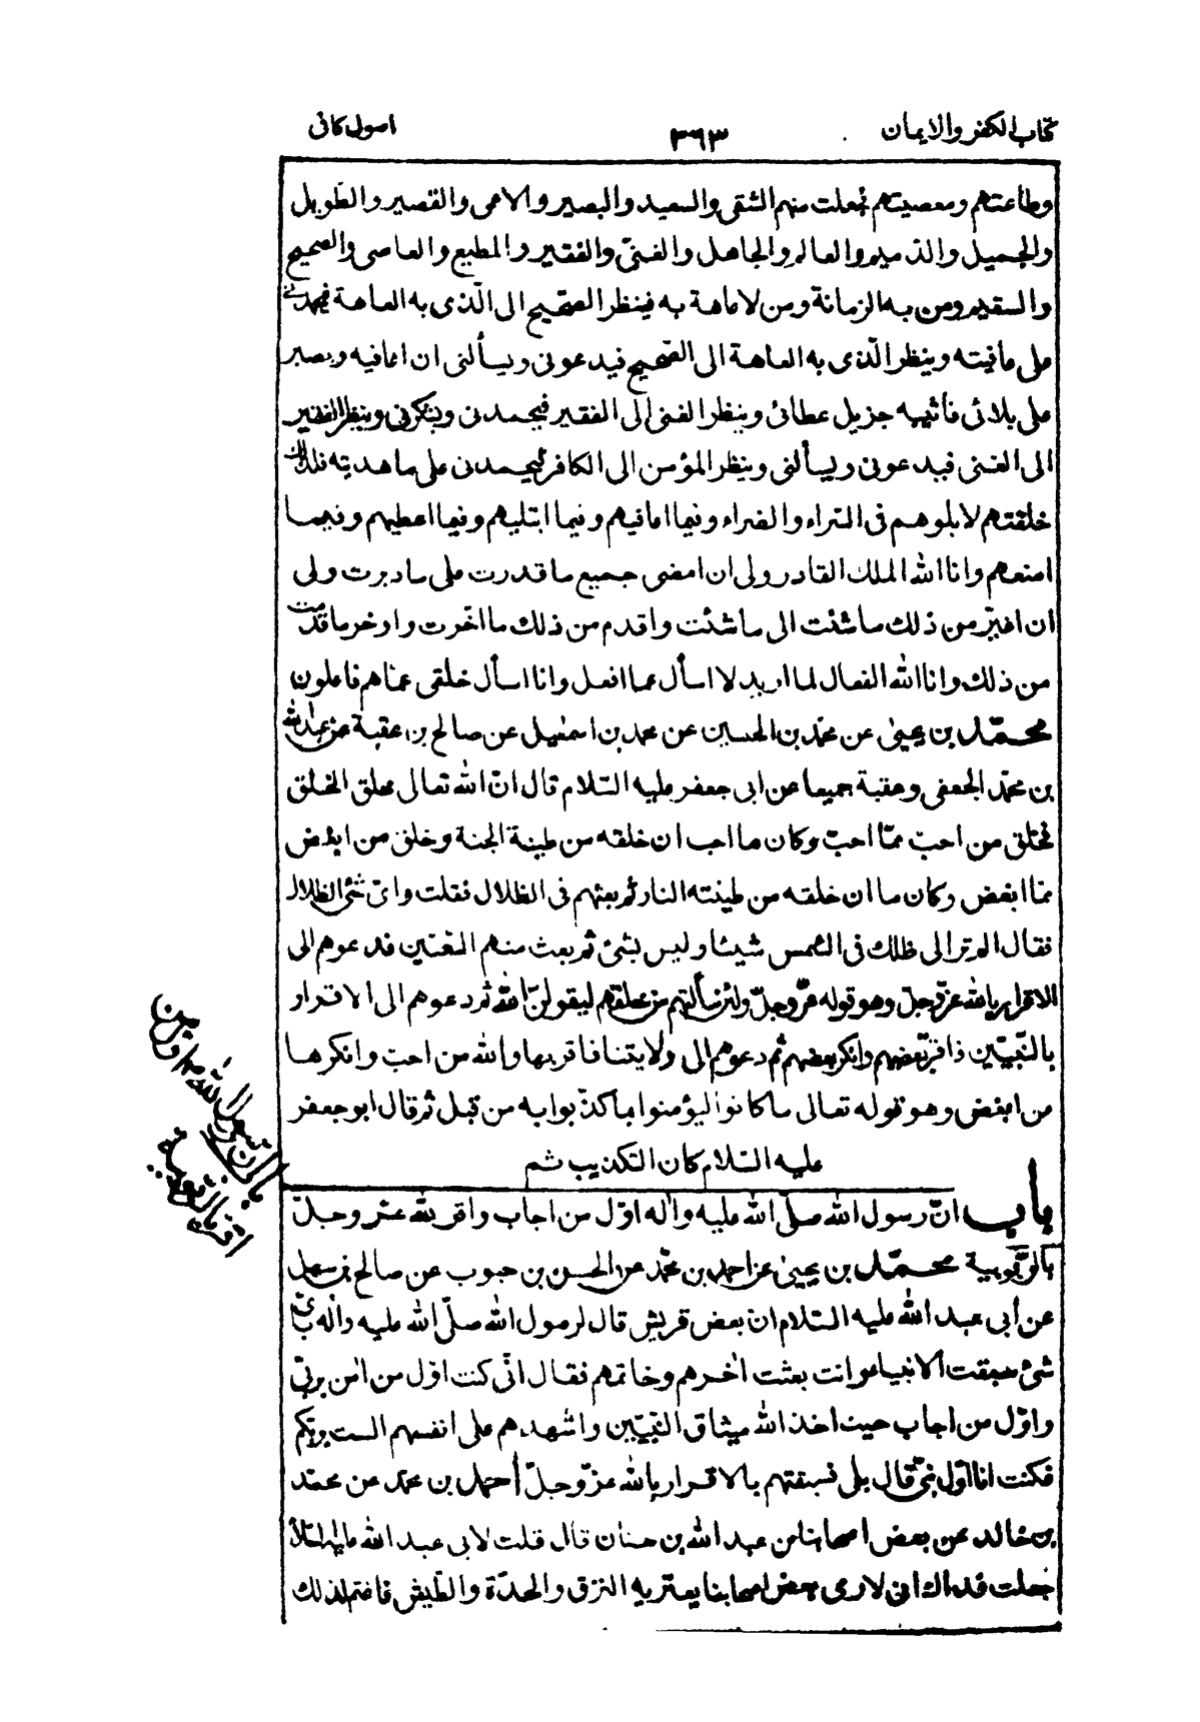 كتاب الكفر والايمان
٣٦٣
اصول كافى
وطاعتهم ومعصيتهم فجعلت منهم الشقى والسعيد والبصير والاعمى والقصير والطويل
والجميل والذميم والعالم والجاهل والغنىّ والفقير والمطيع والعاصى والصحيح
والسقيم ومن به الزمانة ومن لا عاهة به فينظر الصحيح الى الّذى به العاهة فيحمدنى
على عافيته وينظر الّذى به العاهة الى الصّحيح فيدعونى ويسألنى ان اعافيه ويصبر
على بلائى فأثيبه جزيل عطائى وينظر الغنى الى الفقير فيحمدنى ويشكرنى وينظر الفقير
الى الغنى فيدعونى ويسألنى وينظر المؤمن الى الكافر ليحمدنى على ما هديته فلذلك
خلقتهم لابلوهم فى السّراء والضراء وفيما اعافيهم وفيما ابتليهم وفيما اعطيهم وفيما
امنعهم وانا الله الملك القادر ولى ان امضى جميع ما قدرت على ما دبرت ولى
ان اغيّر من ذلك ما شئت الى ما شئت واقدم من ذلك ما اخّرت واوخر ما قدمت
من ذلك وانا الله الفعال لما اريد لا اسأل عما افعل وانا اسأل خلقى عمّا هم فاعلون
محمّد بن يحيىٰ عن محمّد بن الحسين عن محمد بن اسمٰعيل عن صالح بن عقبة عن عبد الله
بن محمّد الجعفى وعقبة جميعا عن ابى جعفر عليه السّلام قال انّ الله تعالى خلق الخلق
فخلق من احبّ ممّا احبّ وكان ما احب ان خلقه من طينة الجنة وخلق من ابغض
ممّا ابغض وكان ما ان خلقه من طينته النار ثم بعثهم فى الظلال فقلت واىّ شئ الظلال
فقال الم تر الى ظلك فى الشمس شيئا وليس بشئ ثم بعث منهم النبيّين فدعوهم الى
الاقرار بالله عزّ وجلّ وهو قوله عزّ وجلّ ولئن سألتهم من خلقهم ليقولنّ الله ثم دعوهم الى الاقرار
بالنّبيّين فاقرّ بعضهم وانكر بعضهم ثم دعوهم الى ولايتنا فاقرّ بها والله من احبّ وانكرها
من ابغض وهو قوله تعالى ما كانوا ليؤمنوا بما كذّبوا به من قبل ثم قال ابو جعفر
عليه السّلام كان التكذيب ثم
باب انّ رسول الله صلّى الله عليه واٰله اوّل من اجاب واقرّ لله عزّ وجلّ
بالرّبوبية محمّد بن يحيىٰ عن احمد بن محمّد عن الحسن بن محبوب عن صالح بن سهل
عن أبى عبد الله عليه السّلام انّ بعض قريش قال لرسول الله صلّى الله عليه واٰله باىّ
شئ سبقت الانبياء وانت بعثت اٰخرهم وخاتمهم فقال انّى كنت اوّل من اٰمن بربّى
واوّل من اجاب حيث اخذ الله ميثاق النّبيّين واشهدهم على انفسهم الست بربّكم
فكنت انا اوّل نبىّ قال بلى فسبقتهم بالاقرار بالله عزّ وجلّ أحمد بن محمد عن محمّد
بن خالد عن بعض اصحابنا عن عبد الله بن سنان قال قلت لابى عبد الله عليه السّلام
جعلت فداك انى لارى بعض اصحابنا يعتريه النزق والحدّة والطّيش فاغتم لذلك
باب ان رسول الله اول من
اقر بالربوبية